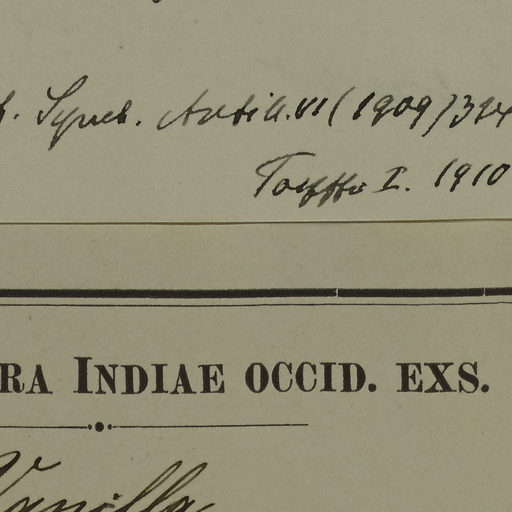 . Symb. Antill. VI (1909) 394
I. 1910
RA INDIAE OCCID. EXS.
Vanilla